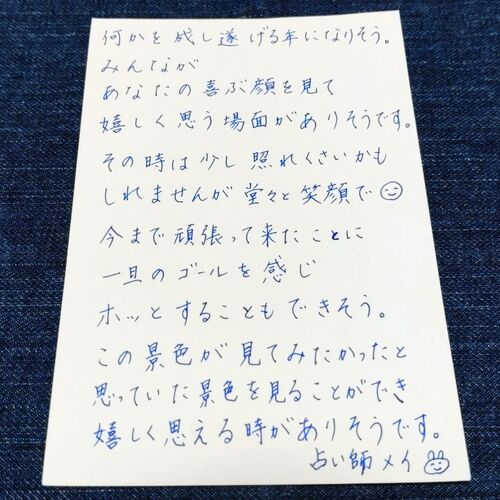 何かを成し遂げる年になりそう。
みんなが
あなたの喜ぶ顔を見て
嬉しく思う場面がありそうです。
その時は少し照れくさいかも
しれませんが堂々と笑顔で
今まで頑張って来たことに
一旦のゴールを感じ
ホッとすることもできそう。
この景色が見てみたかったと
思っていた景色を見ることができ
嬉しく思える時がありそうです。
占い師メイ